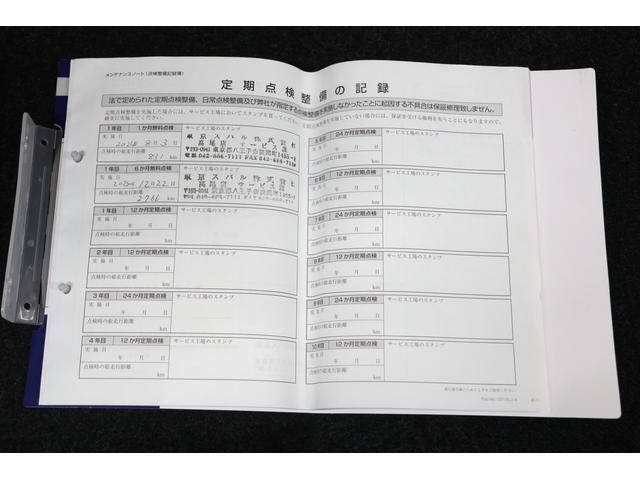 メンテナンスノート（点検整備記録簿）
定期点検整備の記録
法で定められた定期点検整備、日常点検整備及び弊社が指定する点検整備を実施しなかったことに起因する不具合は保証修理致しません。
1年目 1か月無料点検 サービス工場のスタンプ
実施日
2024年8月3日
点検時の総走行距離
811 km
東京スバル株式会社
高尾店 サービス課
〒193-0941 東京都八王子市狭間町1455-8
電話 042-666-7111 FAX 042-666-7116
1年目 6か月無料点検 サービス工場のスタンプ
実施日
点検時の総走行距離
2766 km
東京スバル株式会社
高尾店 サービス課
1年目 12か月定期点検 サービス工場のスタンプ
実施日
年 月 日
点検時の総走行距離
km
2年目 12か月定期点検 サービス工場のスタンプ
実施日
年 月 日
点検時の総走行距離
km
3年目 24か月定期点検 サービス工場のスタンプ
実施日
年 月 日
点検時の総走行距離
km
4年目 12か月定期点検 サービス工場のスタンプ
実施日
年 月 日
点検時の総走行距離
km
5年目 24か月定期点検 サービス工場のスタンプ
実施日
年 月 日
点検時の総走行距離
km
6年目 12か月定期点検 サービス工場のスタンプ
実施日
年 月 日
点検時の総走行距離
km
7年目 24か月定期点検 サービス工場のスタンプ
実施日
年 月 日
点検時の総走行距離
km
8年目 12か月定期点検 サービス工場のスタンプ
実施日
年 月 日
点検時の総走行距離
km
9年目 24か月定期点検 サービス工場のスタンプ
実施日
年 月 日
点検時の総走行距離
km
10年目 12か月定期点検 サービス工場のスタンプ
実施日
年 月 日
点検時の総走行距離
km